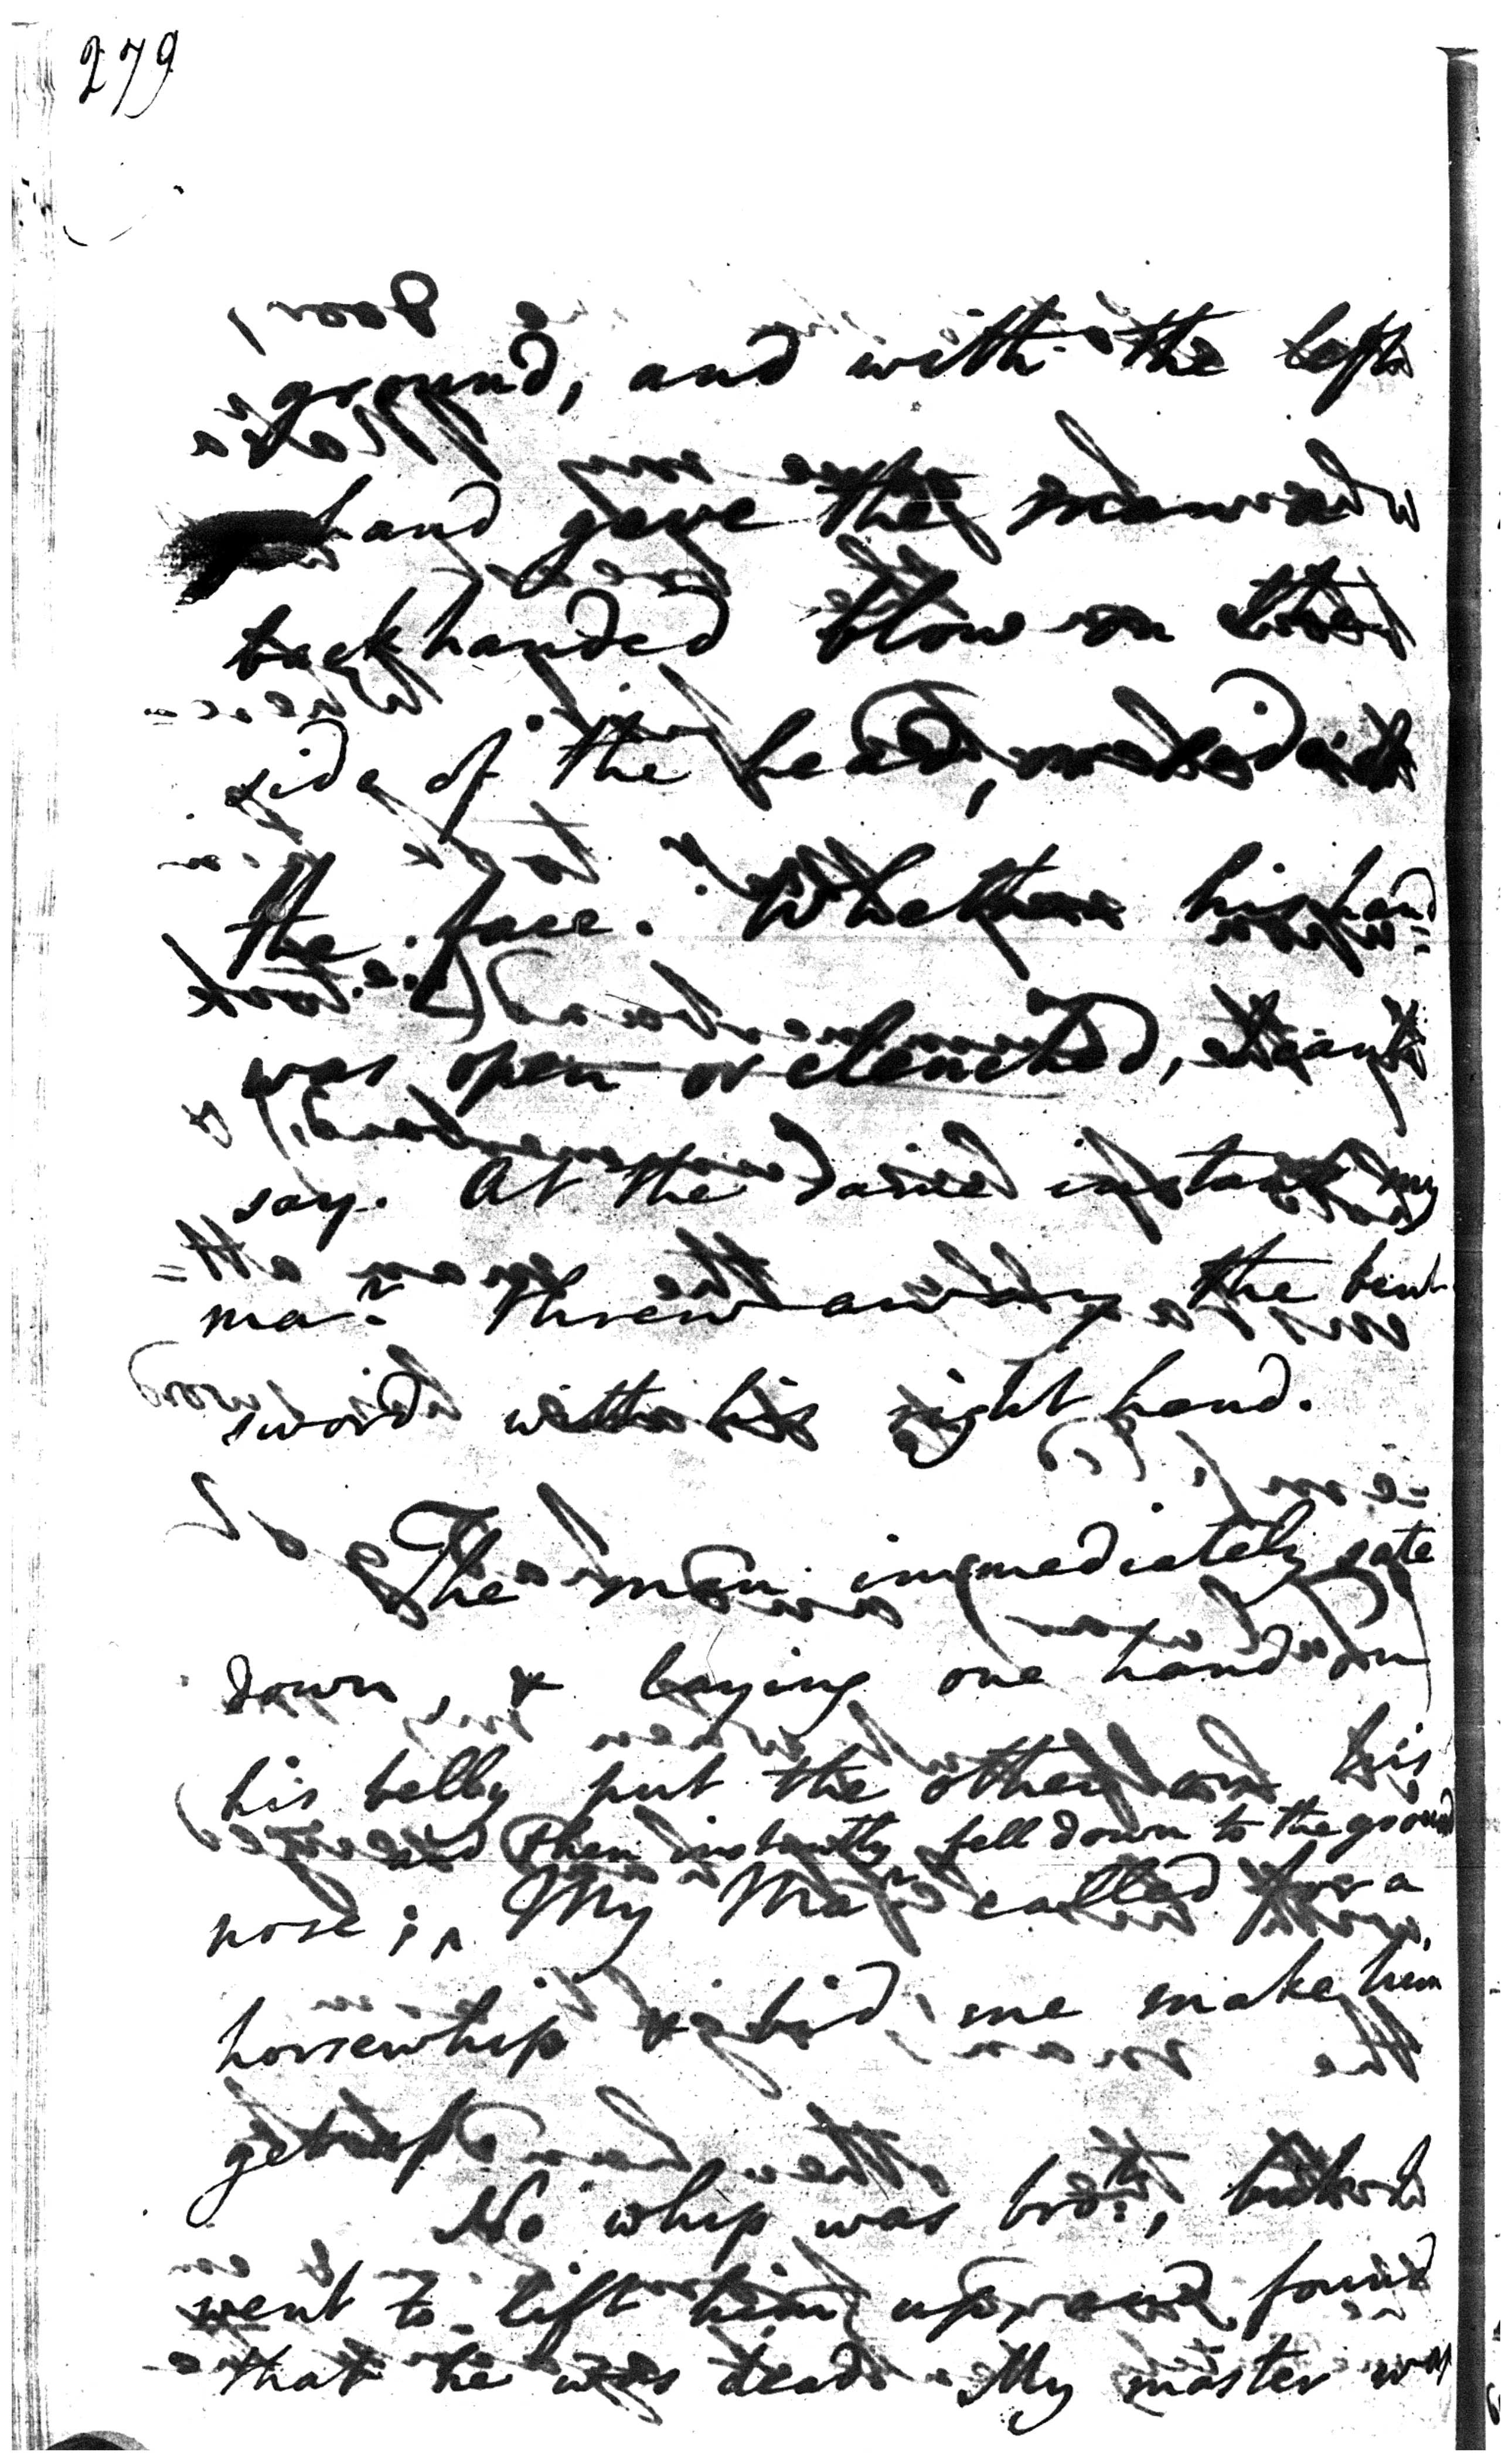 279
ground, and with the left
hand gave the man a
backhanded blow on the
side of the head,
the face. Whether his hand
was open or clenched, I can't
say. At the same instant my
maʳ threw away the bent
sword with his right hand.
The man immediately sate
down, & laying one hand on
his belly put the other on his
and then instantly fell down to the ground
nose; ^ My Maʳ called for a
horsewhip & bid me make him
get up.
No whip was broᵗ, but I
went to lift him up, and found
that he was dead. My master was